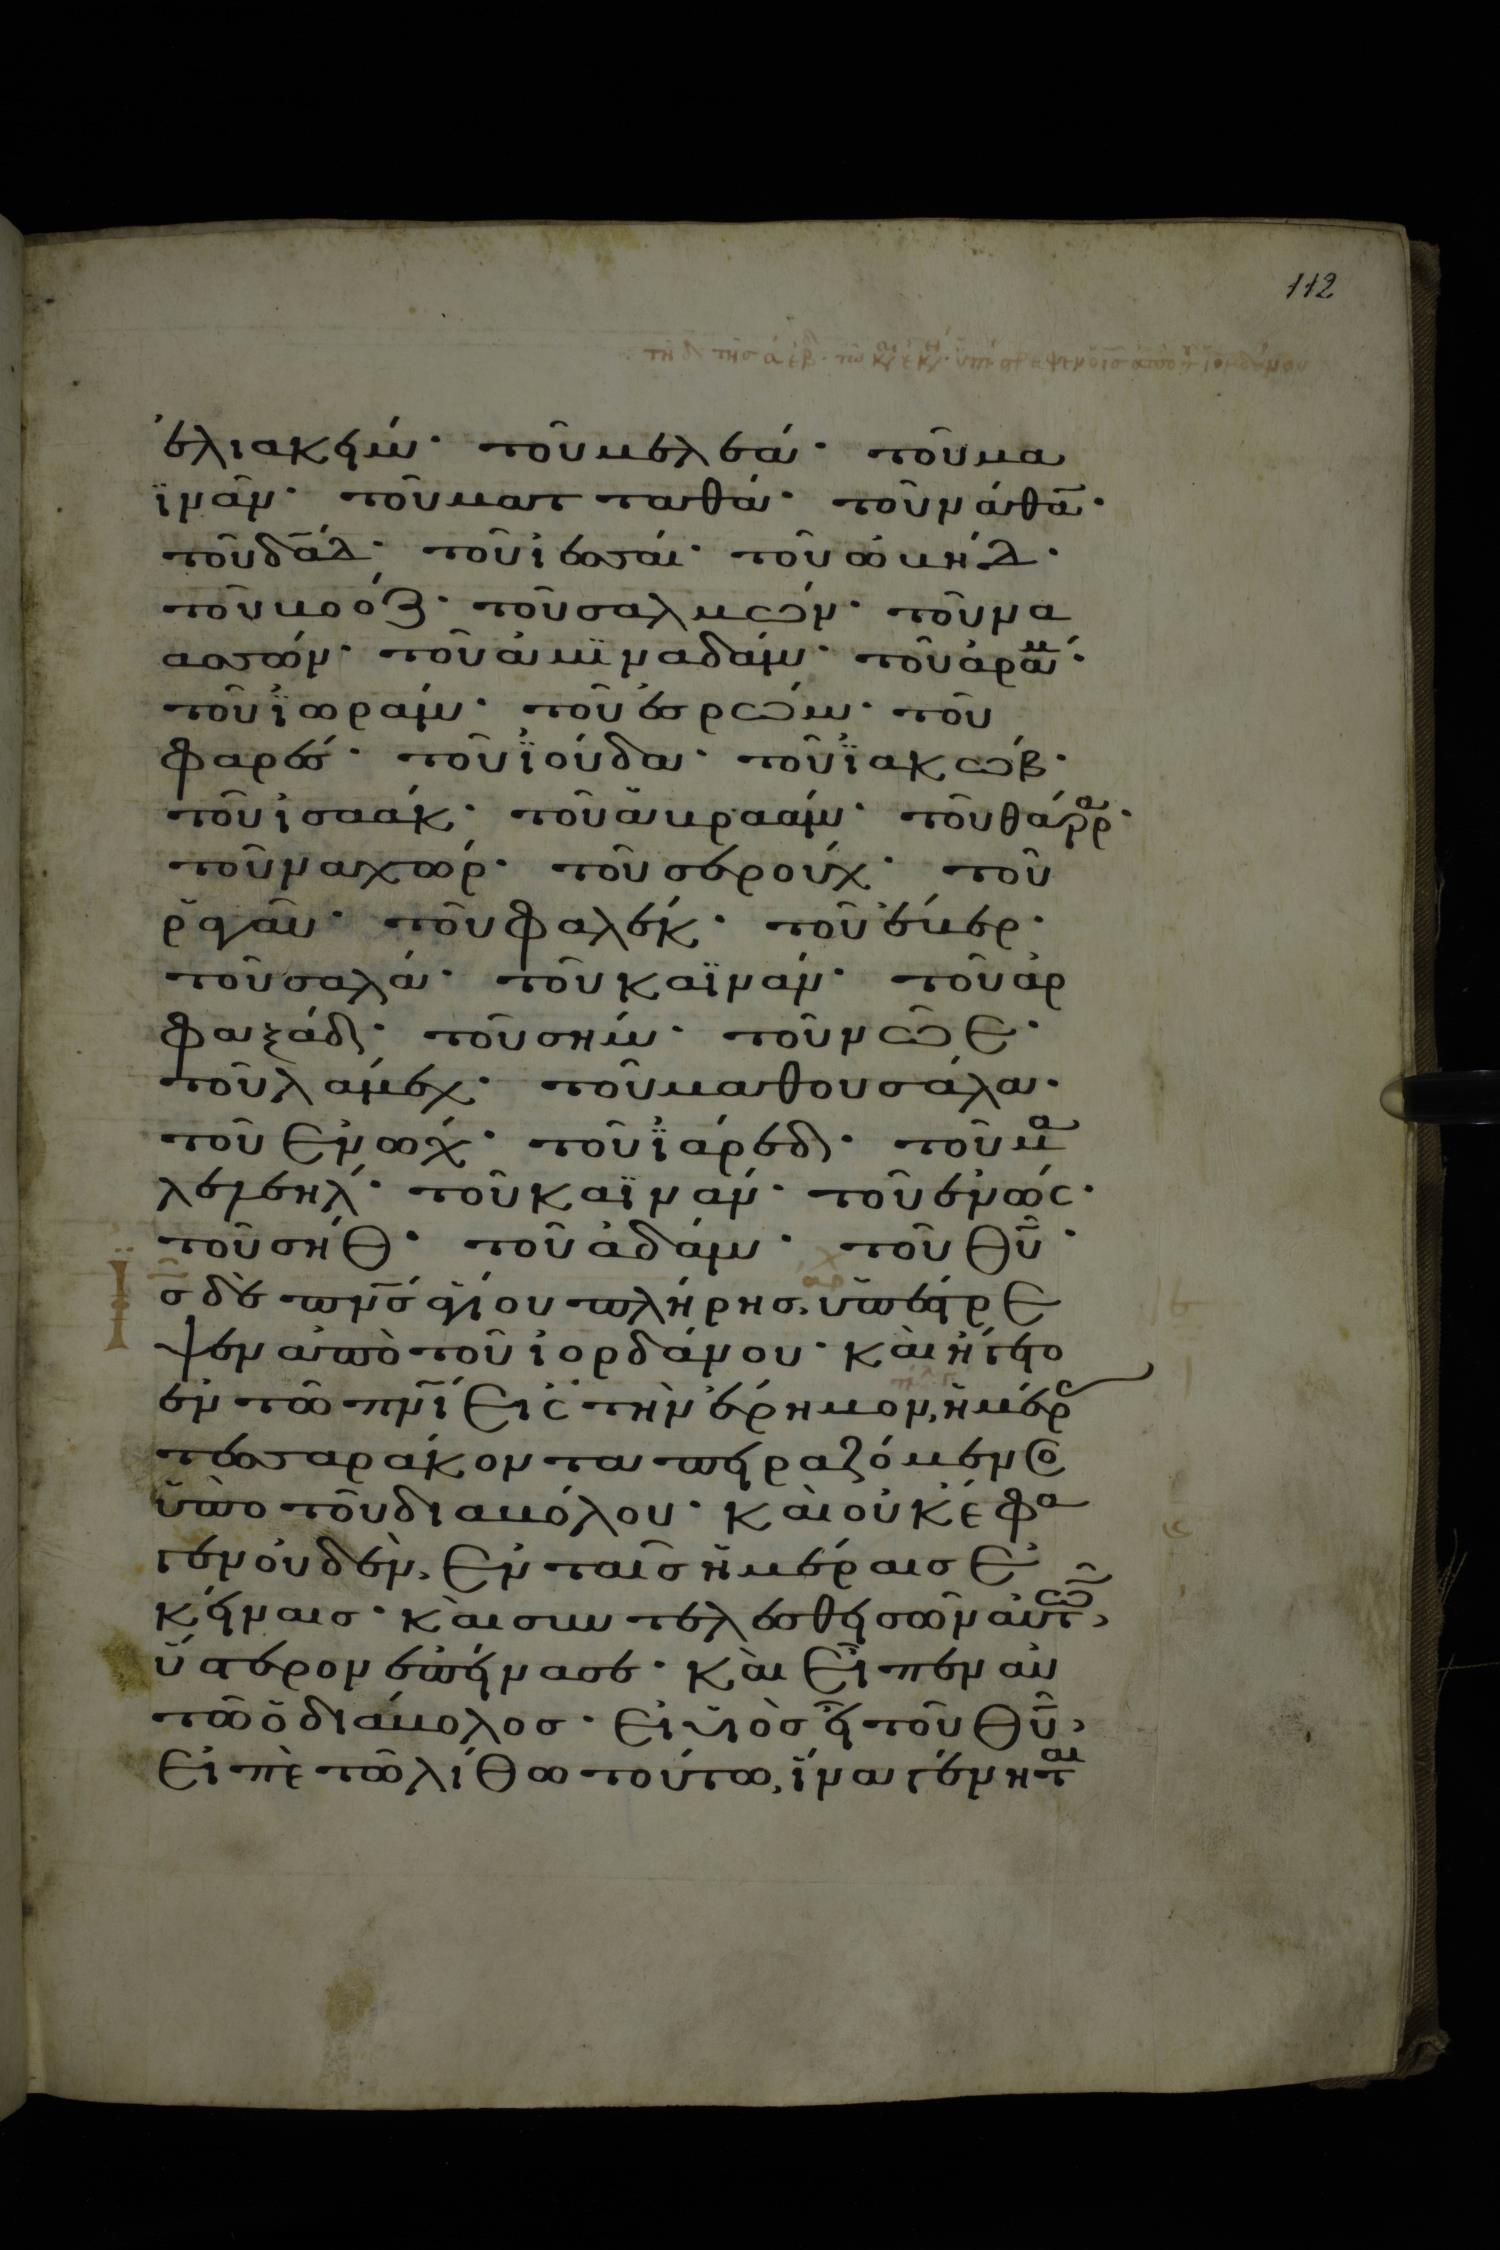 112
ἐλιακείμ· τοῦ μελεά· τοῦ μα
ϊνᾶν· τοῦ ματταθά· τοῦ νάθᾱ·
τοῦ δᾱδ· τοῦ ἰεσσαί· τοῦ ὠβήδ·
τοῦ βοόζ· τοῦ σαλμών· τοῦ να
ασσών· τοῦ ἀμϊναδάμ· τοῦ ἀράμ·
τοῦ ἰωράμ· τοῦ ἐσρώμ· τοῦ
φαρές· τοῦ ἰούδα· τοῦ ἰακώβ·
τοῦ ἰσαάκ· τοῦ ἀβραάμ· τοῦ θάρρα·
τοῦ ναχώρ· τοῦ σερούχ· τοῦ
ῥαγαῦ· τοῦ φαλέκ· τοῦ ἔβερ·
τοῦ σαλά· τοῦ καϊνάν· τοῦ ἀρ
φαξάδ· τοῦ σήμ· τοῦ νῶε·
τοῦ λάμεχ· τοῦ μαθουσάλα·
τοῦ ἐνώχ· τοῦ ἰάρεδ· τοῦ μα
λελεήλ· τοῦ καϊνάν· τοῦ ἐνώς·
τοῦ σήθ· τοῦ ἀδάμ· τοῦ θῡ·
Ις δὲ πνς ἁγίου πλήρης, ὑπέστρε
ψεν ἀπὸ τοῦ ἰορδάνου· καὶ ἤγετο
ἐν τῶ πνι εἰς τὴν ἔρημον, ἡμέρας
τεσσαράκοντα πειραζόμενος
ὑπὸ τοῦ διαβόλου· καὶ οὐκ ἔφα
γεν οὐδὲν, ἐν ταῖς ἡμέραις ἐ
κείναις· καὶ συντελεσθεισῶν αὐτῶν,
ὕστερον ἐπείνασε· καὶ εἶπεν αὐ
τῶ ὁ διάβολος· εἰ υἱὸς εἶ τοῦ θῡ,
εἰπὲ τῶ λίθω τούτω, ἵνα γένηται